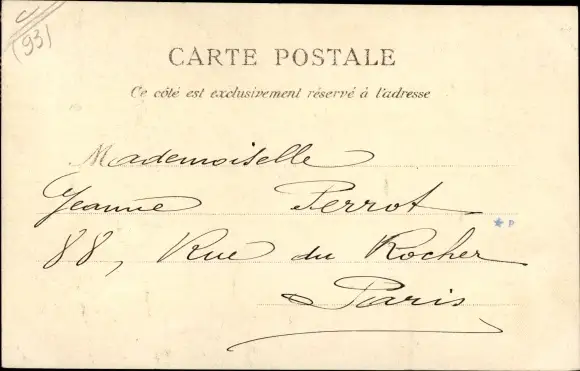 (93)
CARTE POSTALE
Ce côté est exclusivement réservé à l'adresse
Mademoiselle
Jeanne Perrot
P
88, Rue du Rocher
Paris